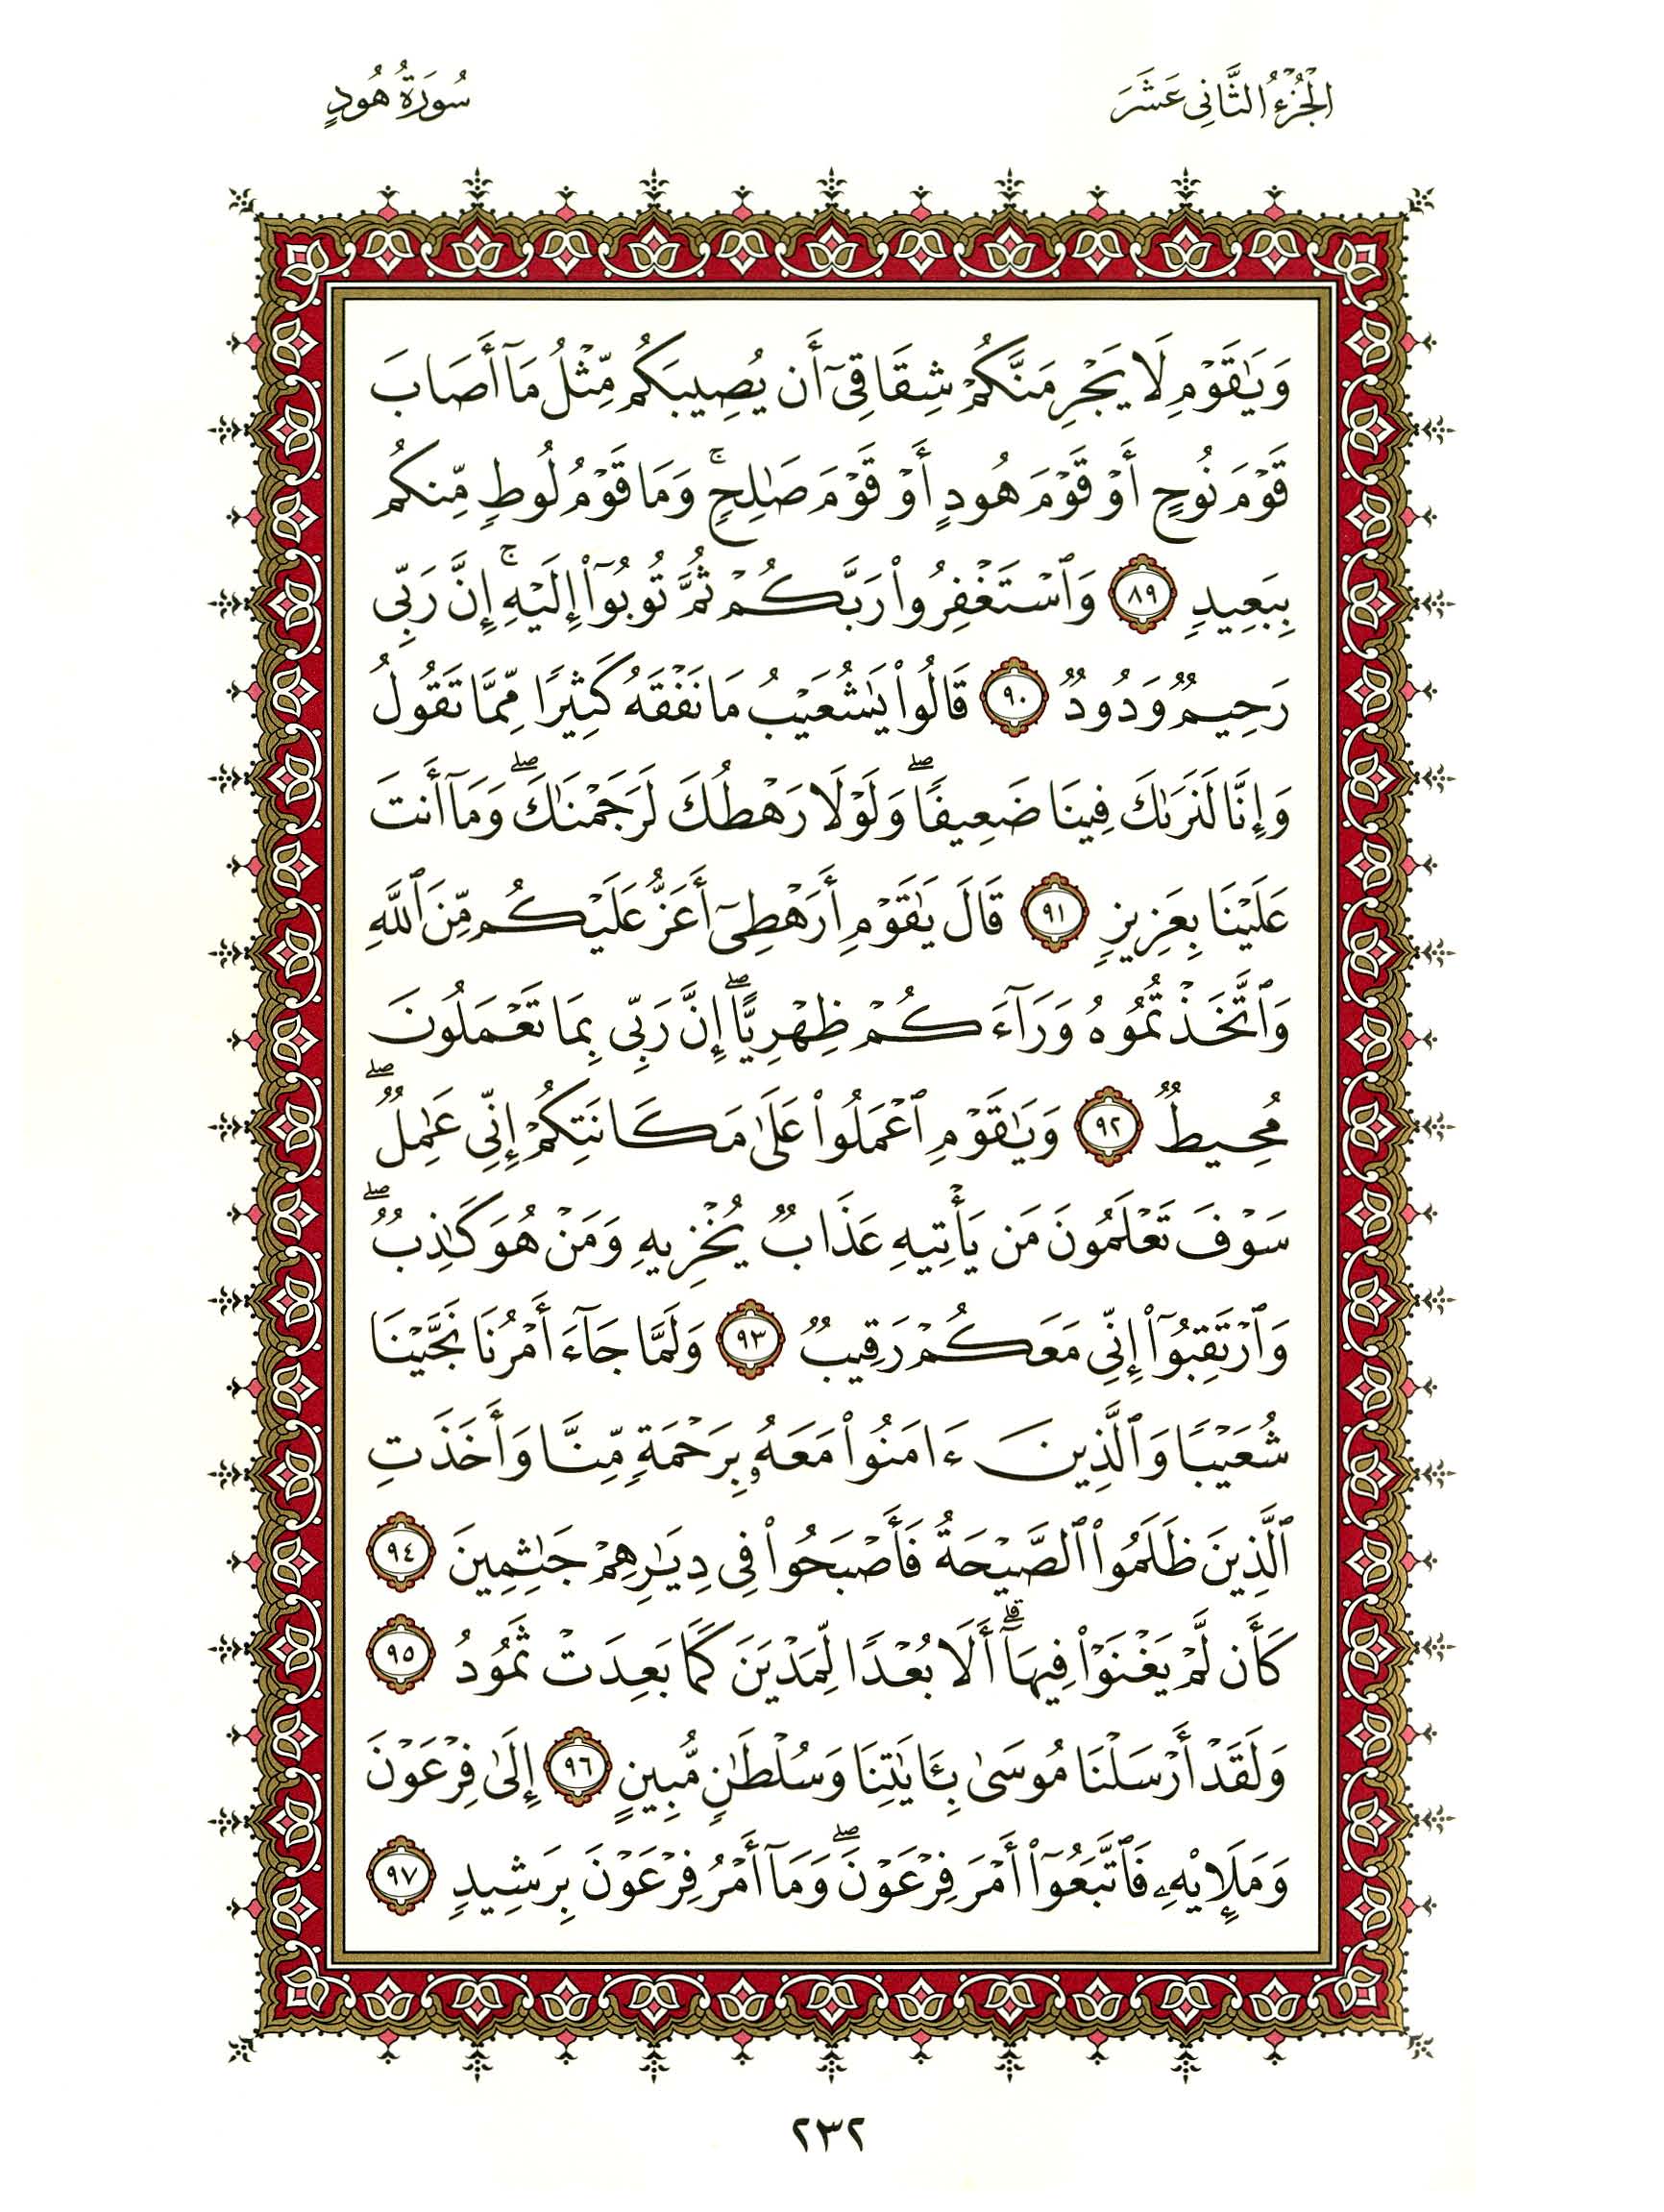 الجُزْءُ الثَّانِي عَشَرَ
سُورَةُ هُودٍ
وَيَٰقَوْمِ لَا يَجْرِمَنَّكُمْ شِقَاقِيٓ أَن يُصِيبَكُم مِّثْلُ مَآ أَصَابَ
قَوْمَ نُوحٍ أَوْ قَوْمَ هُودٍ أَوْ قَوْمَ صَٰلِحٍ ۚ وَمَا قَوْمُ لُوطٍ مِّنكُم
بِبَعِيدٍ ٨٩ وَٱسْتَغْفِرُوا۟ رَبَّكُمْ ثُمَّ تُوبُوٓا۟ إِلَيْهِ ۚ إِنَّ رَبِّى
رَحِيمٌ وَدُودٌ ٩٠ قَالُوا۟ يَٰشُعَيْبُ مَا نَفْقَهُ كَثِيرًا مِّمَّا تَقُولُ
وَإِنَّا لَنَرَىٰكَ فِينَا ضَعِيفًا ۖ وَلَوْلَا رَهْطُكَ لَرَجَمْنَٰكَ ۖ وَمَآ أَنتَ
عَلَيْنَا بِعَزِيزٍ ٩١ قَالَ يَٰقَوْمِ أَرَهْطِىٓ أَعَزُّ عَلَيْكُم مِّنَ ٱللَّهِ
وَٱتَّخَذْتُمُوهُ وَرَآءَكُمْ ظِهْرِيًّا ۖ إِنَّ رَبِّى بِمَا تَعْمَلُونَ
مُحِيطٌ ٩٢ وَيَٰقَوْمِ ٱعْمَلُوا۟ عَلَىٰ مَكَانَتِكُمْ إِنِّى عَٰمِلٌ ۖ
سَوْفَ تَعْلَمُونَ مَن يَأْتِيهِ عَذَابٌ يُخْزِيهِ وَمَنْ هُوَ كَٰذِبٌ ۖ
وَٱرْتَقِبُوٓا۟ إِنِّى مَعَكُمْ رَقِيبٌ ٩٣ وَلَمَّا جَآءَ أَمْرُنَا نَجَّيْنَا
شُعَيْبًا وَٱلَّذِينَ ءَامَنُوا۟ مَعَهُۥ بِرَحْمَةٍ مِّنَّا وَأَخَذَتِ
ٱلَّذِينَ ظَلَمُوا۟ ٱلصَّيْحَةُ فَأَصْبَحُوا۟ فِى دِيَٰرِهِمْ جَٰثِمِينَ ٩٤
كَأَن لَّمْ يَغْنَوْا۟ فِيهَآ ۗ أَلَا بُعْدًا لِّمَدْيَنَ كَمَا بَعِدَتْ ثَمُودُ ٩٥
وَلَقَدْ أَرْسَلْنَا مُوسَىٰ بِـَٔايَٰتِنَا وَسُلْطَٰنٍ مُّبِينٍ ٩٦ إِلَىٰ فِرْعَوْنَ
وَمَلَإِي۟هِۦ فَٱتَّبَعُوٓا۟ أَمْرَ فِرْعَوْنَ ۖ وَمَآ أَمْرُ فِرْعَوْنَ بِرَشِيدٍ ٩٧
٢٣٢